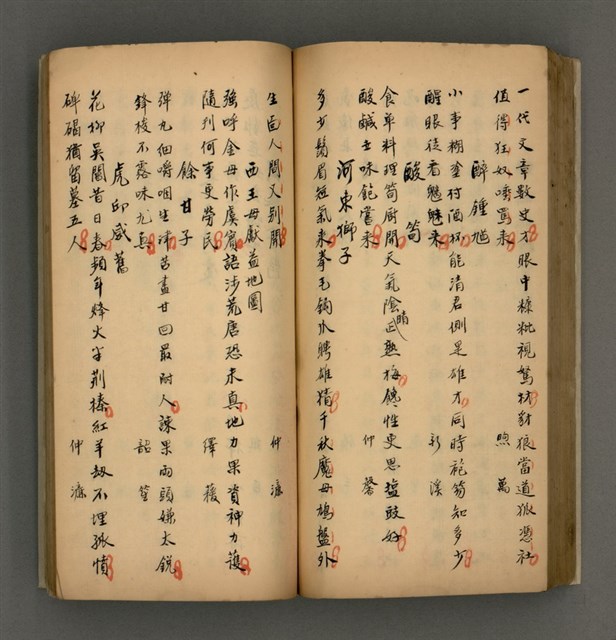 一代文章數史才眼中糠粃視駑材豺狼當道狐憑社
值得狂奴嘻罵來　煦萬
醉鍾馗
小事糊塗村酒杯能清君側是雄才同時袍笏知多少
醒眼徒看魑魅來　彩溪
酸筍
食單料理筍廚開天氣陰晴正熟梅饞性更思塩豉好
酸鹹士味飽嘗來　仲馨
河東獅子
多少鬚眉短氣來拳毛鋦爪騁雄猜千秋魔母鳩盤外
生面人間又別開　仲濂
西王母獻益地圖
強呼金母作虞賓語涉荒唐恐未真地力果資神力護
隨刋何事更勞民　繹蘐
餘甘子
弹丸細嚼咽生津苦盡甘回最耐人諫果兩頭嫌太鋭
鋒棱不露味尤真　韶笙
虎邱感舊
花柳吳閶昔日春頻年烽火半荊榛紅羊劫不埋孤憤
碑碣猶留墓五人　仲濂